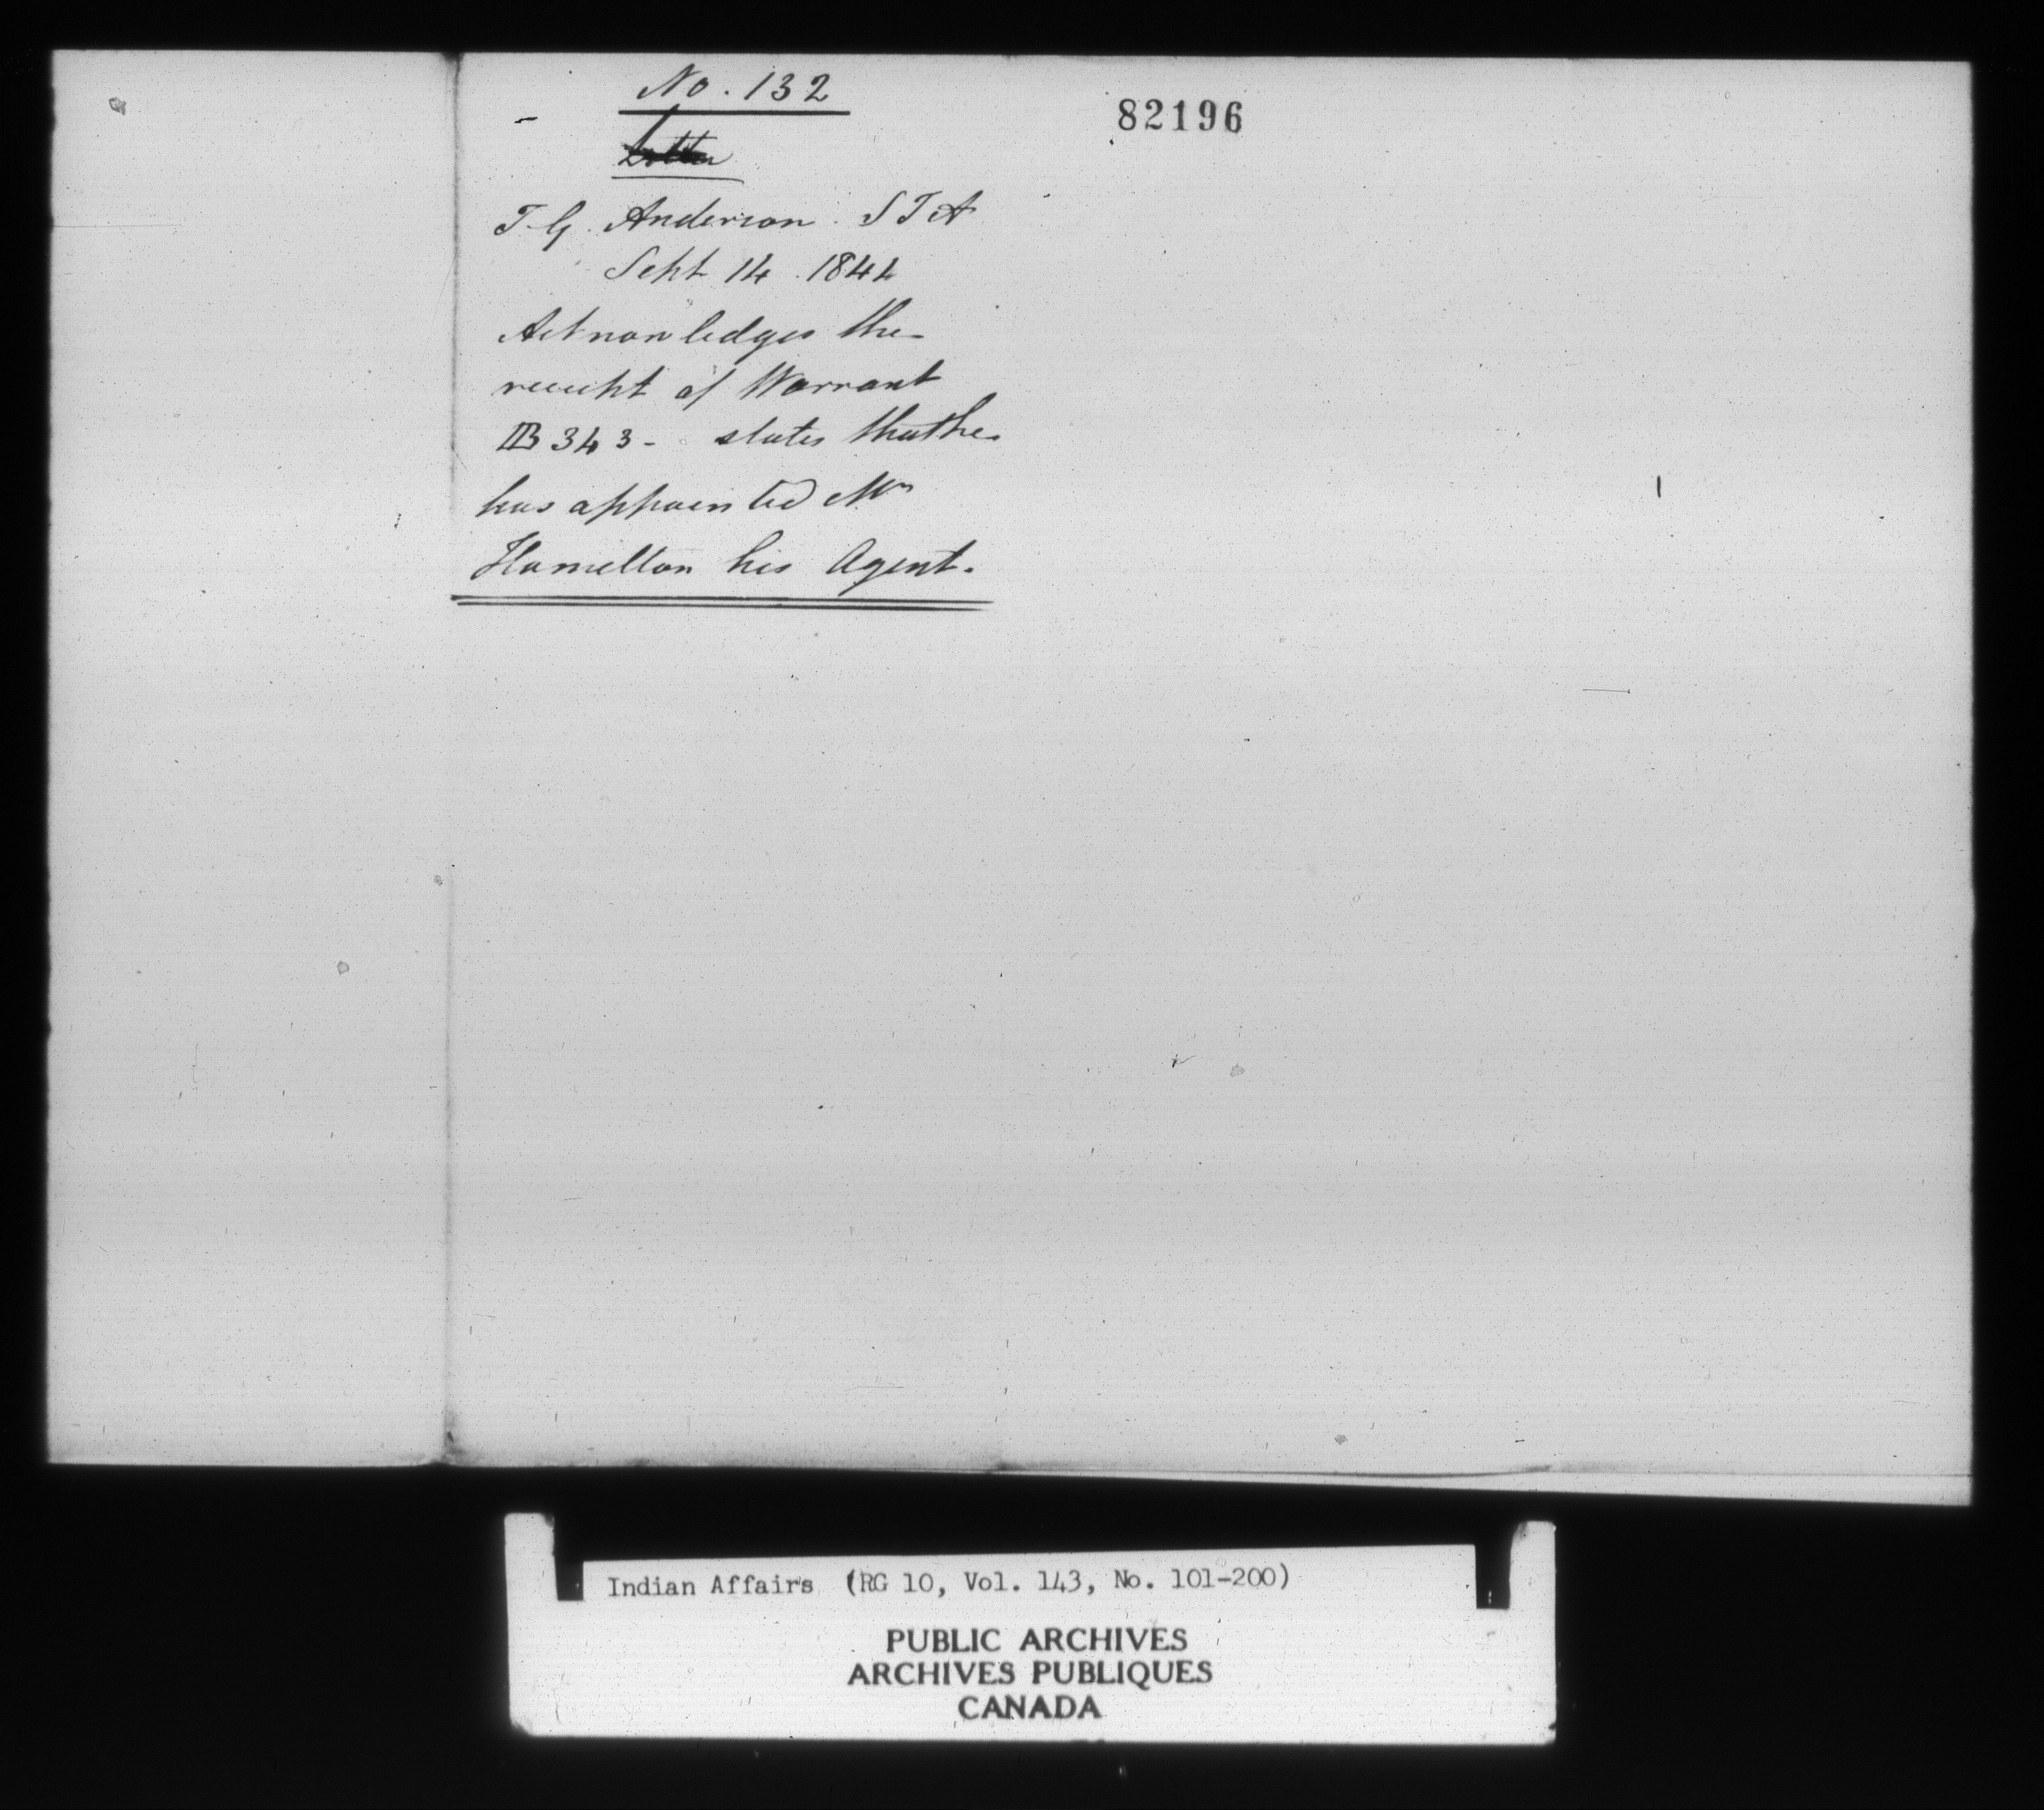 No. 132
82196
Letter
T. G. Anderson. S I A
Sept 14. 1844
Acknowledges the
receipt of Warrant
B 343 - states that he
has appointed Mr
Hamelton his Agent.
Indian Affairs (RG 10, Vol. 143, No. 101-200)
PUBLIC ARCHIVES
ARCHIVES PUBLIQUES
CANADA